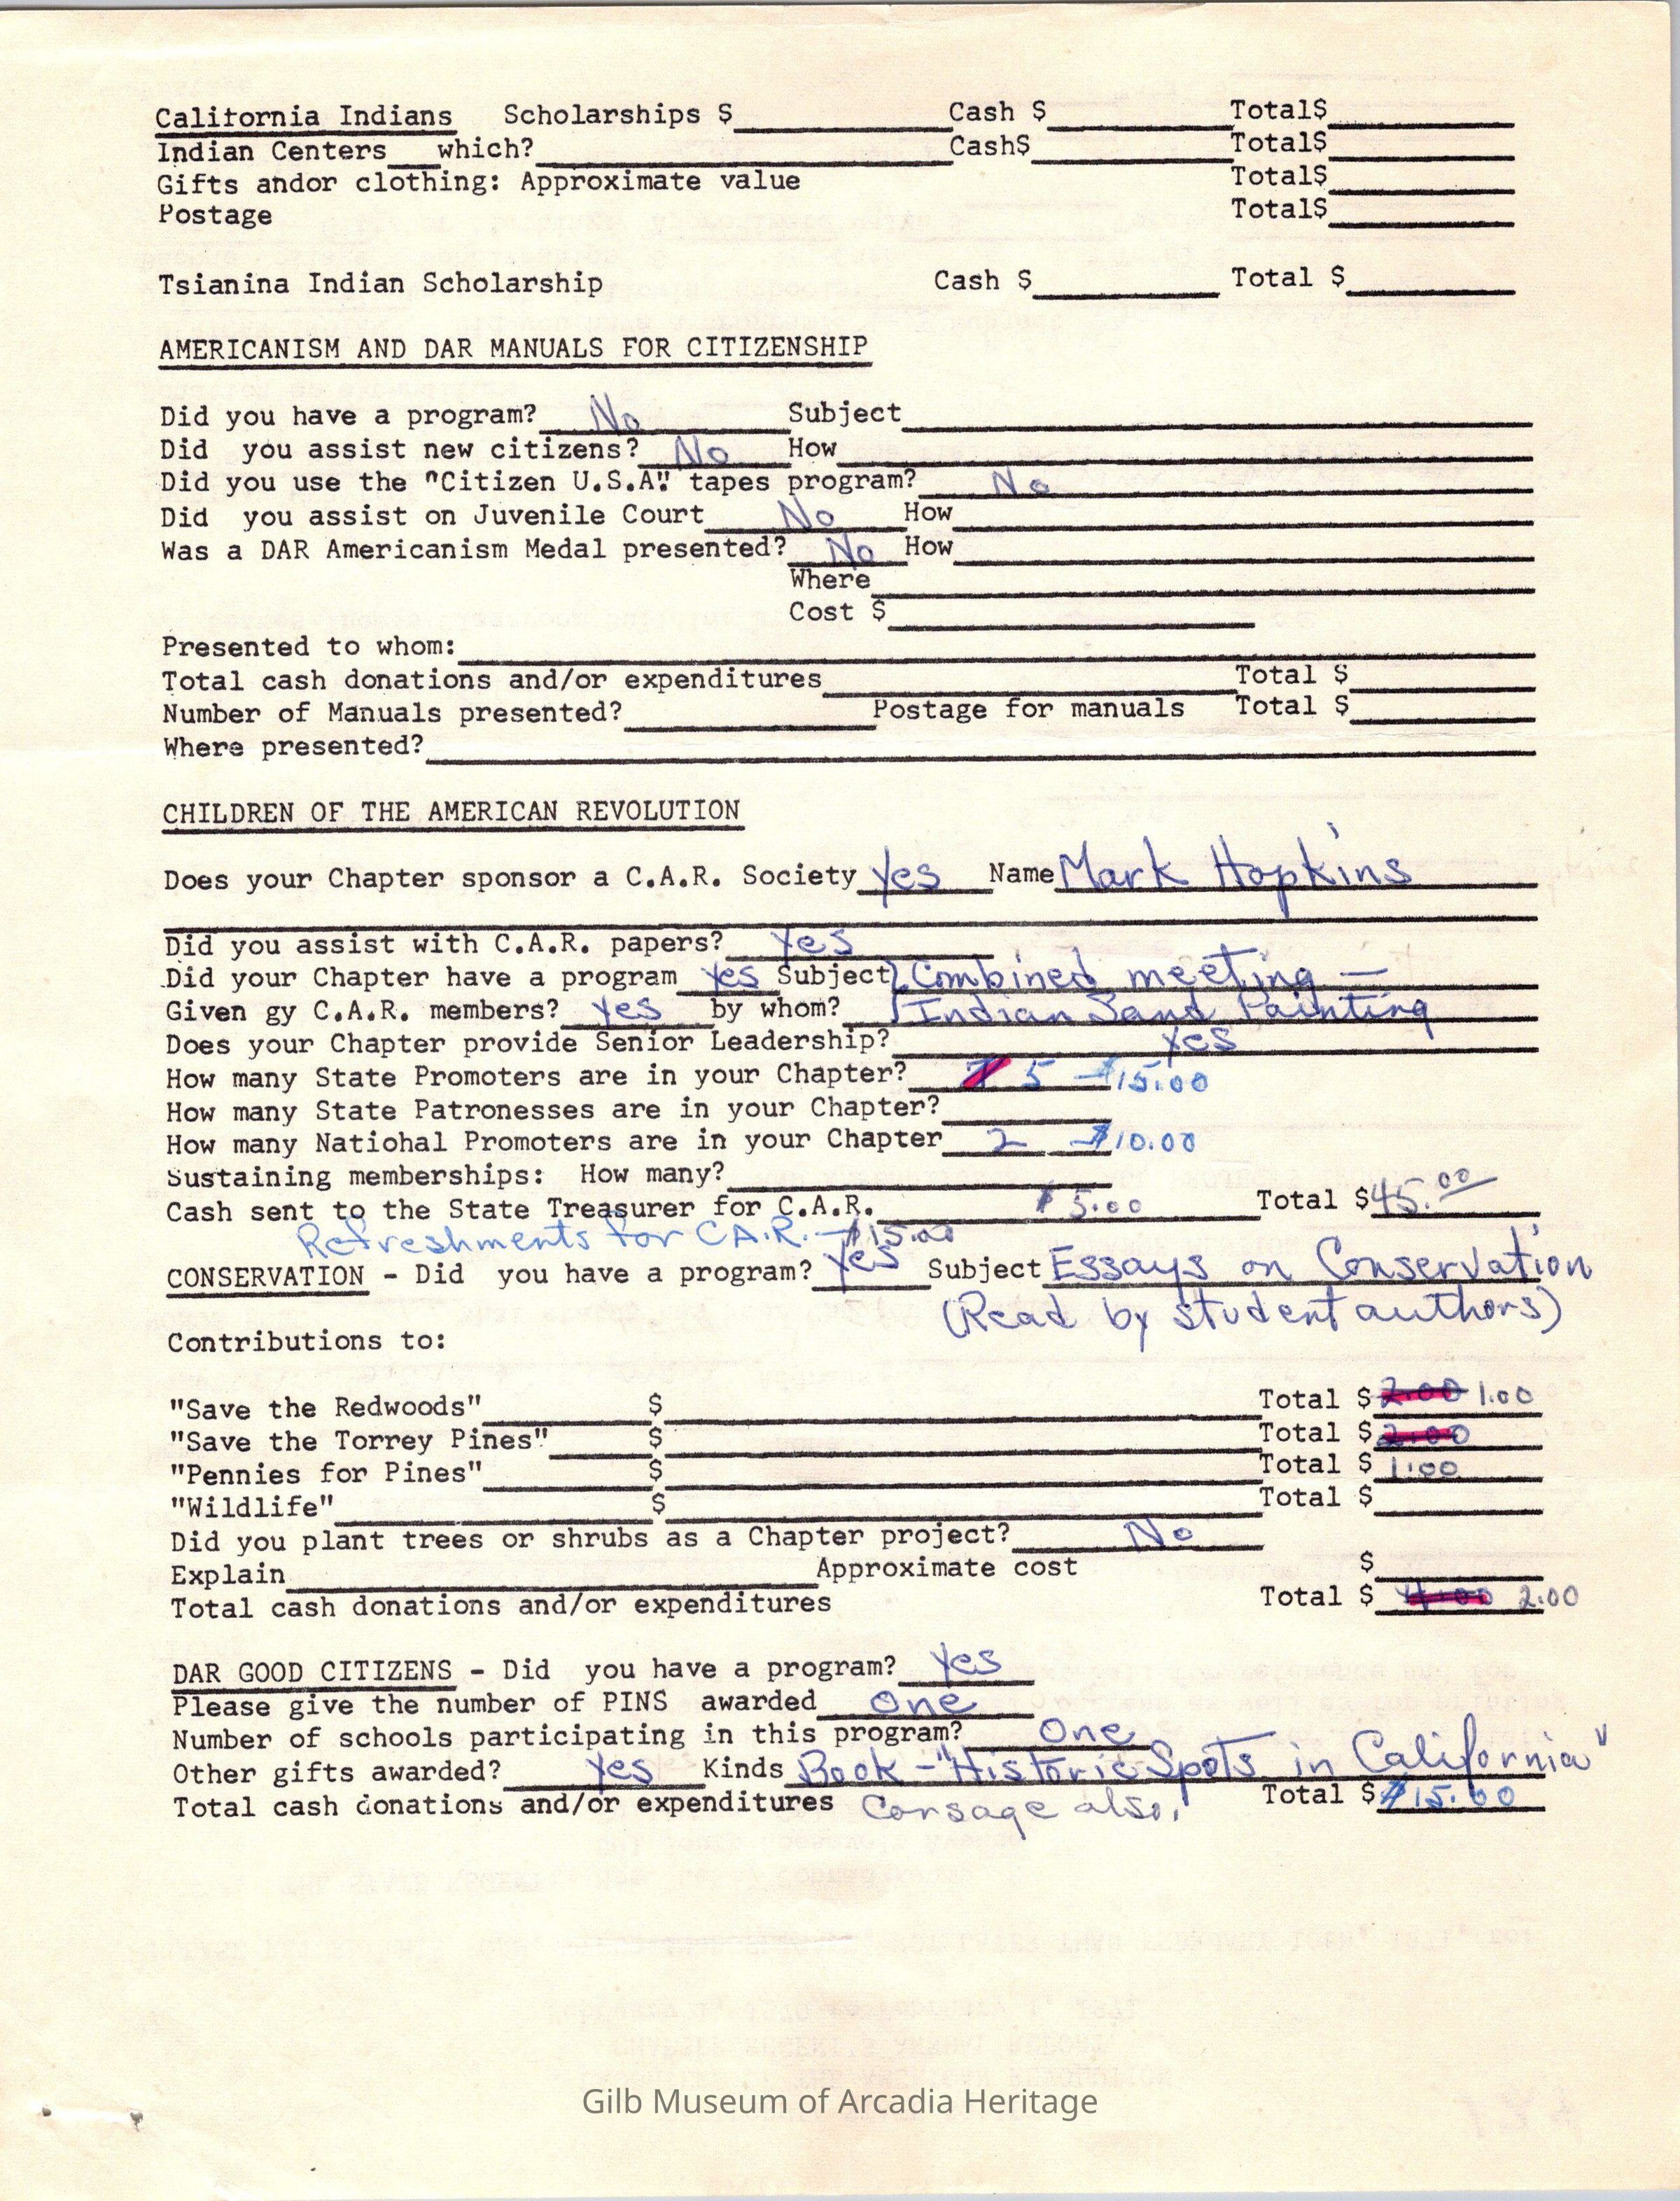 California Indians Scholarships $ Cash $ Total$
Indian Centers which? Cash$ Total$
Gifts andor clothing: Approximate value Total$
Postage Total$
Tsianina Indian Scholarship Cash $ Total $
AMERICANISM AND DAR MANUALS FOR CITIZENSHIP
Did you have a program? No Subject
Did you assist new citizens? No How
Did you use the "Citizen U.S.A." tapes program? No
Did you assist on Juvenile Court No How
Was a DAR Americanism Medal presented? No How
Where
Cost $
Presented to whom:
Total cash donations and/or expenditures Total $
Number of Manuals presented? Postage for manuals Total $
Where presented?
CHILDREN OF THE AMERICAN REVOLUTION
Does your Chapter sponsor a C.A.R. Society Yes Name Mark Hopkins
Did you assist with C.A.R. papers? Yes
Did your Chapter have a program Yes Subject Combined meeting —
Given gy C.A.R. members? Yes by whom? Indian Sand Painting
Does your Chapter provide Senior Leadership? Yes
How many State Promoters are in your Chapter? 7 5 - $15.00
How many State Patronesses are in your Chapter?
How many Natiohal Promoters are in your Chapter 2 - $10.00
Sustaining memberships: How many?
Cash sent to the State Treasurer for C.A.R. $5.00 Total $45.00
Refreshments for C.A.R. - $15.00
CONSERVATION - Did you have a program? Yes Subject Essays on Conservation
(Read by student authors)
Contributions to:
"Save the Redwoods" $ Total $ 2.00 1.00
"Save the Torrey Pines" $ Total $ 2.00
"Pennies for Pines" $ Total $ 1.00
"Wildlife" $ Total $
Did you plant trees or shrubs as a Chapter project? No
Explain Approximate cost $
Total cash donations and/or expenditures Total $ 4.00 2.00
DAR GOOD CITIZENS - Did you have a program? Yes
Please give the number of PINS awarded One
Number of schools participating in this program? One
Other gifts awarded? Yes Kinds Book - "Historic Spots in California"
Total cash donations and/or expenditures Corsage also. Total $ $15.00
Gilb Museum of Arcadia Heritage